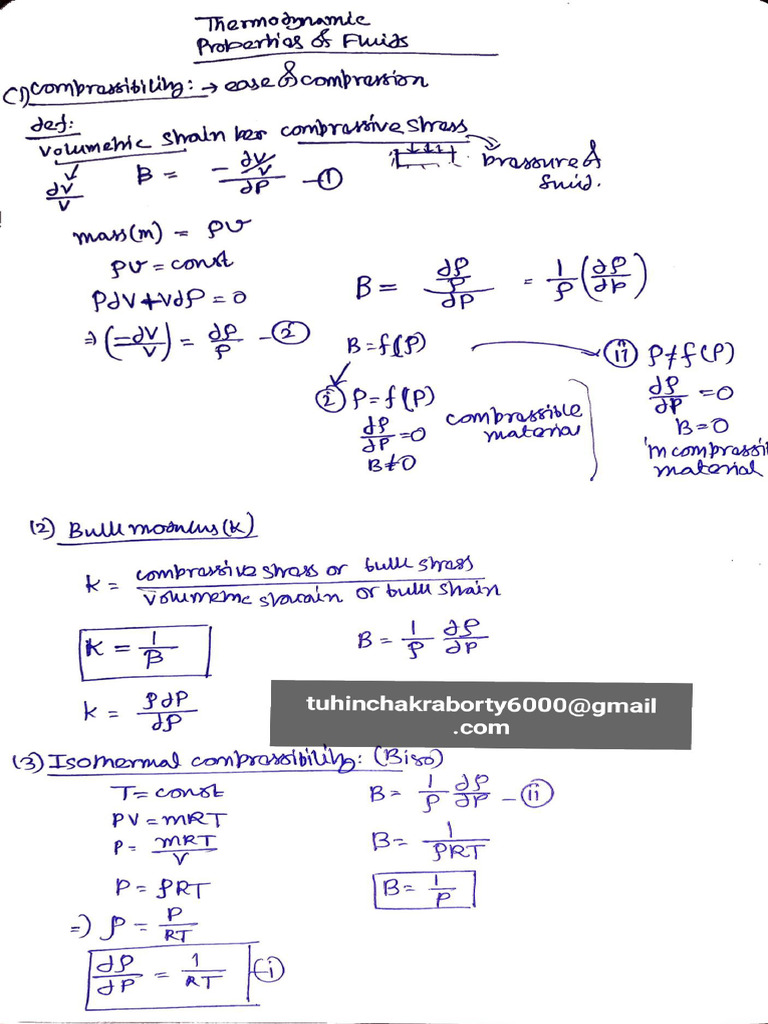 Thermodynamic
Properties of Fluids
(1) compressibility: → ease of compression
def:
volumetric strain per compressive stress
pressure of fluid.
dV/V
B = - (dV/V)/dP - ①
mass(m) = ρv
ρv = const
ρdV + Vdρ = 0
⇒ (-dV/V) = dρ/ρ - ②
B = (dρ/ρ)/dP = 1/ρ (dρ/dP)
B = f(ρ)
ⓘ ρ = f(P)
dρ/dP = 0
B ≠ 0
compressible
material
ⓘⓘ ρ ≠ f(P)
dρ/dP = 0
B = 0
incompressi
material
(2) Bulk modulus (K)
K = compressive stress or bulk stress / volumetric starain or bulk strain
K = 1/β
B = 1/ρ dρ/dP
K = ρdP/dρ
tuhinchakraborty6000@gmail
.com
(3) Isothermal compressibility: (Biso)
T = const
PV = mRT
P = mRT/V
P = ρRT
⇒) ρ = P/RT
dρ/dP = 1/RT - (i)
B = 1/ρ dρ/dP - (ii)
B = 1/ρRT
B = 1/P